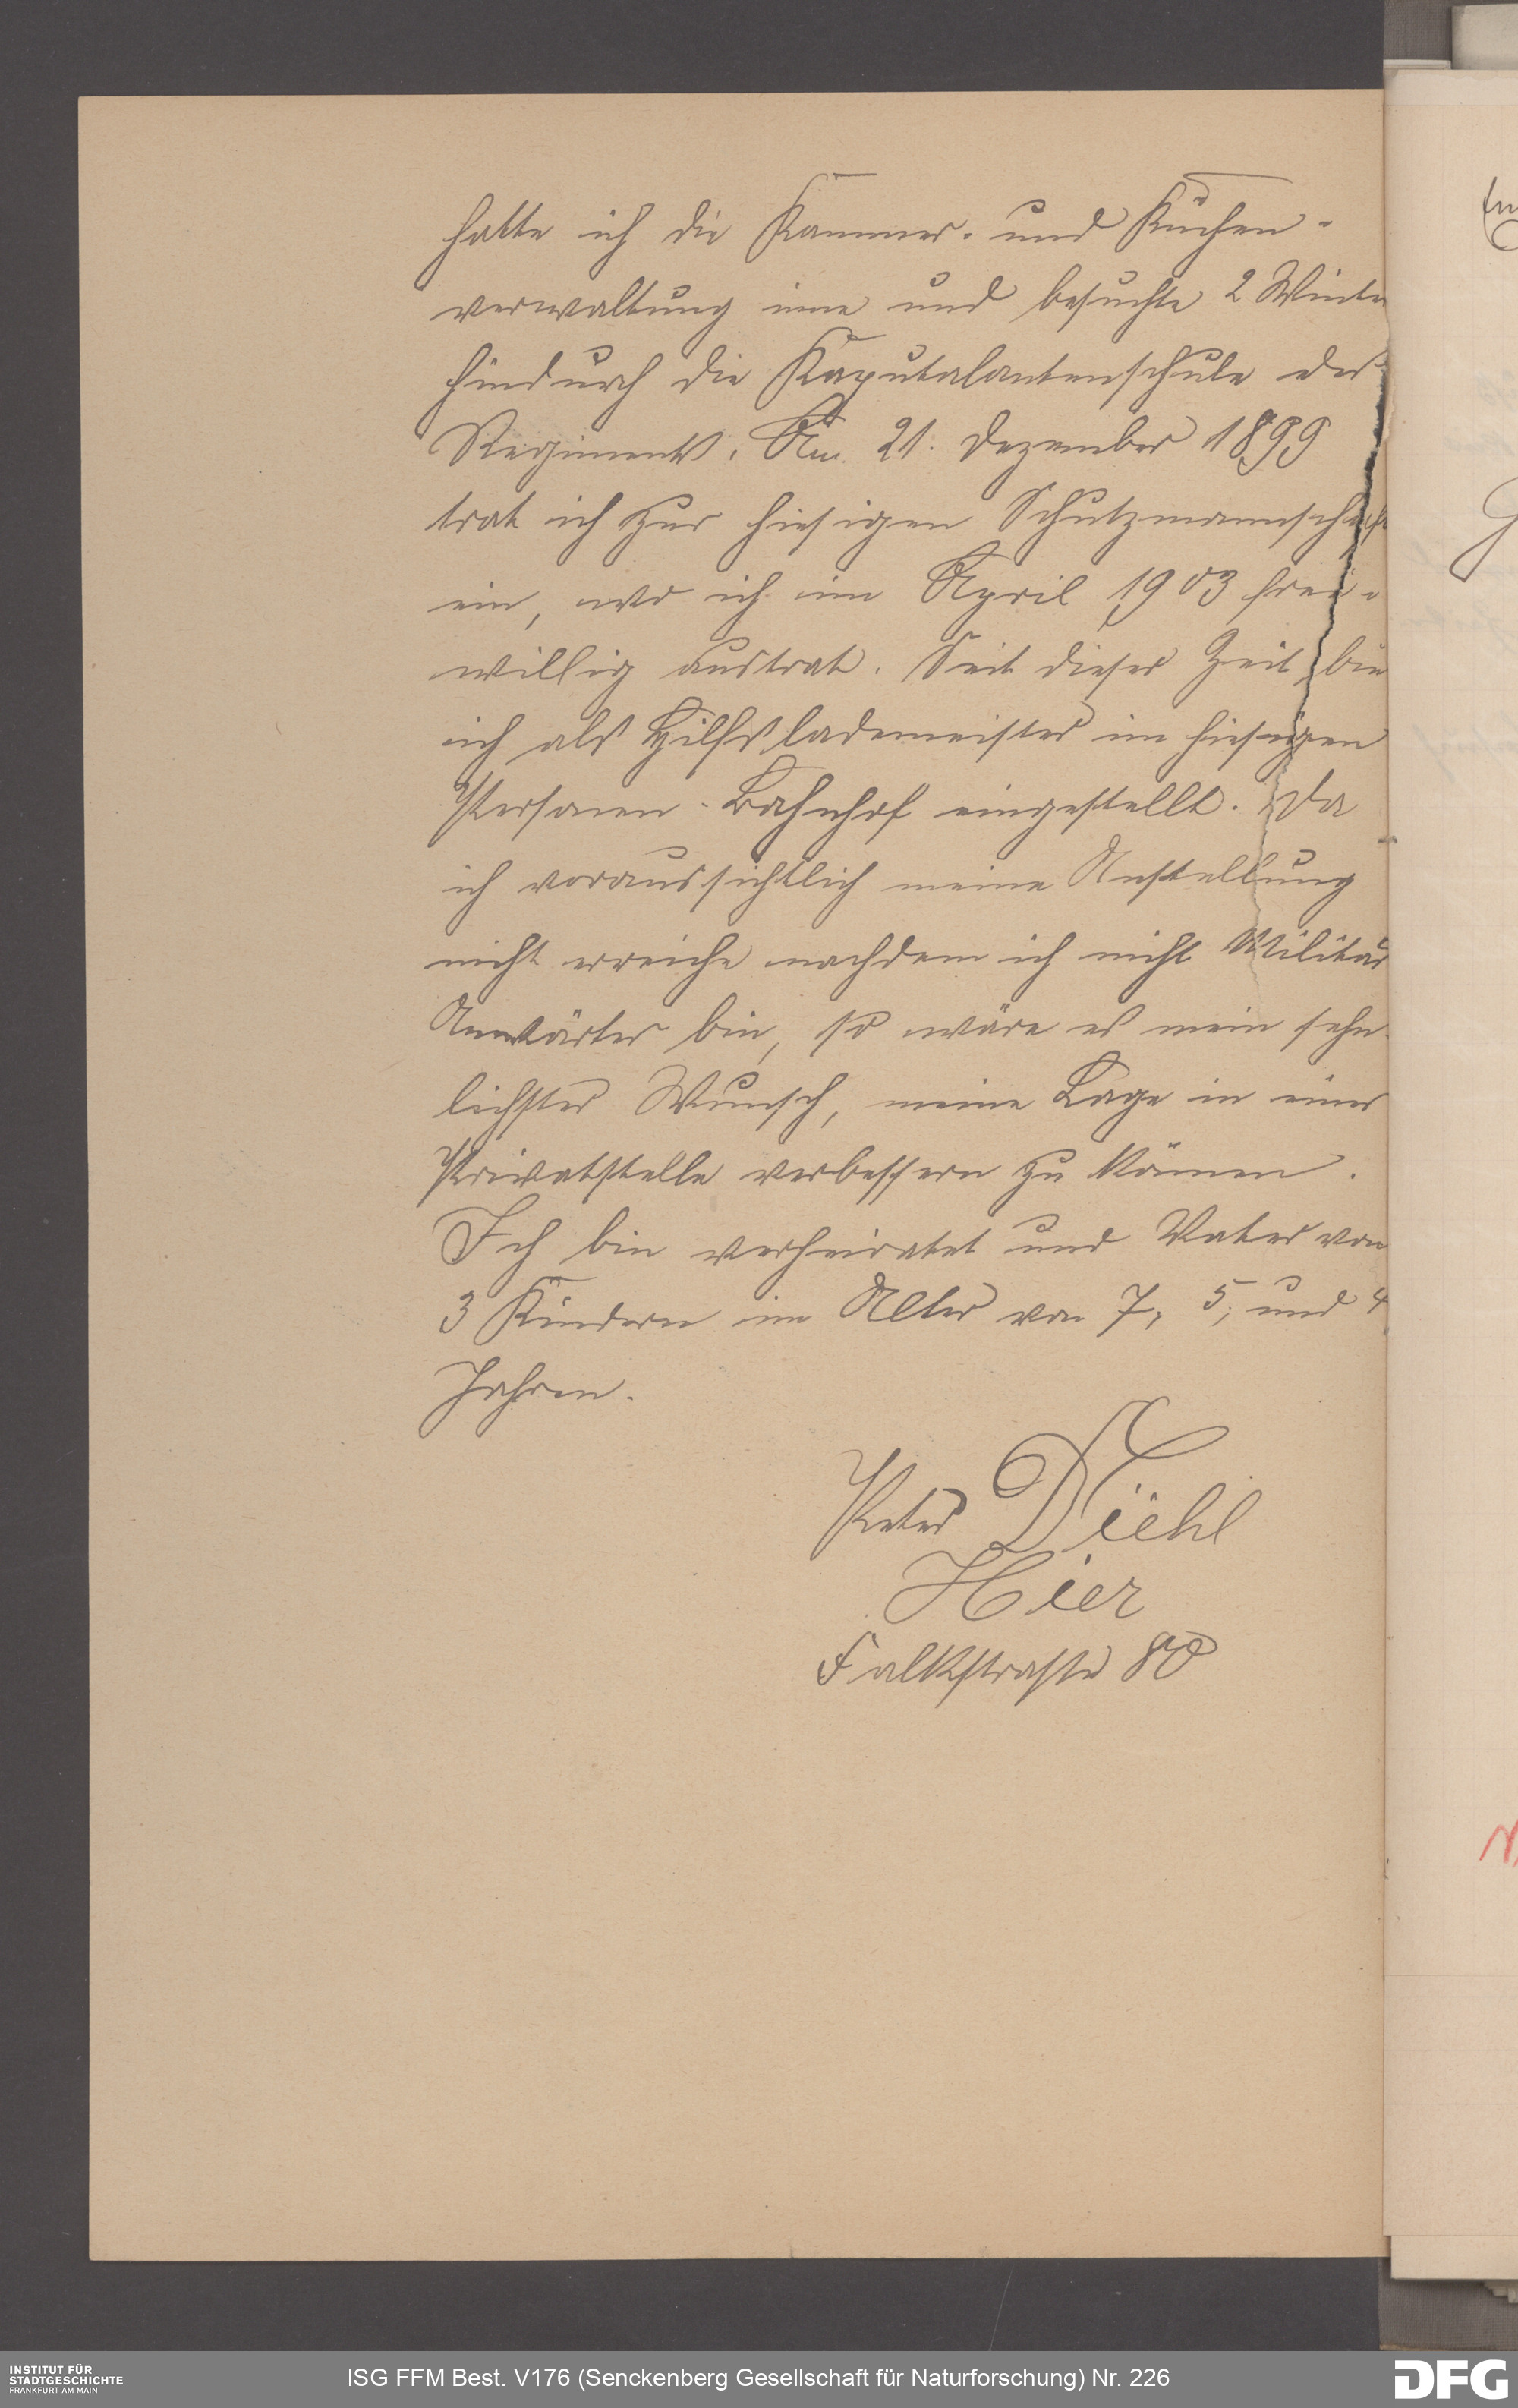 hatte ich die Kammer- und Küchen-
verwaltung inne und besuchte 2 Winter
hindurch die Kaputalantenschule des
Regiments. Am 21. Dezember 1899
trat ich zur hiesigen Schutzmannschaft
ein, wo ich im April 1903 frei-
willig austrat. Seit dieser Zeit bin
ich als Hilfslademeister im hiesigen
Personen-Bahnhof eingestellt. Da
ich voraussichtlich meine Anstellung
nicht erreiche nachdem ich nicht Militär
Anwärter bin, so wäre es mein sehn-
lichster Wunsch, meine Lage in einer
Privatstelle verbessern zu können.
Ich bin verheiratet und Vater von
3 Kindern im Alter von 7, 5, und 4
Jahren.
Peter Diehl
Hier
Falkstraße 80
INSTITUT FÜR
STADTGESCHICHTE
FRANKFURT AM MAIN
ISG FFM Best. V176 (Senckenberg Gesellschaft für Naturforschung) Nr. 226
DFG